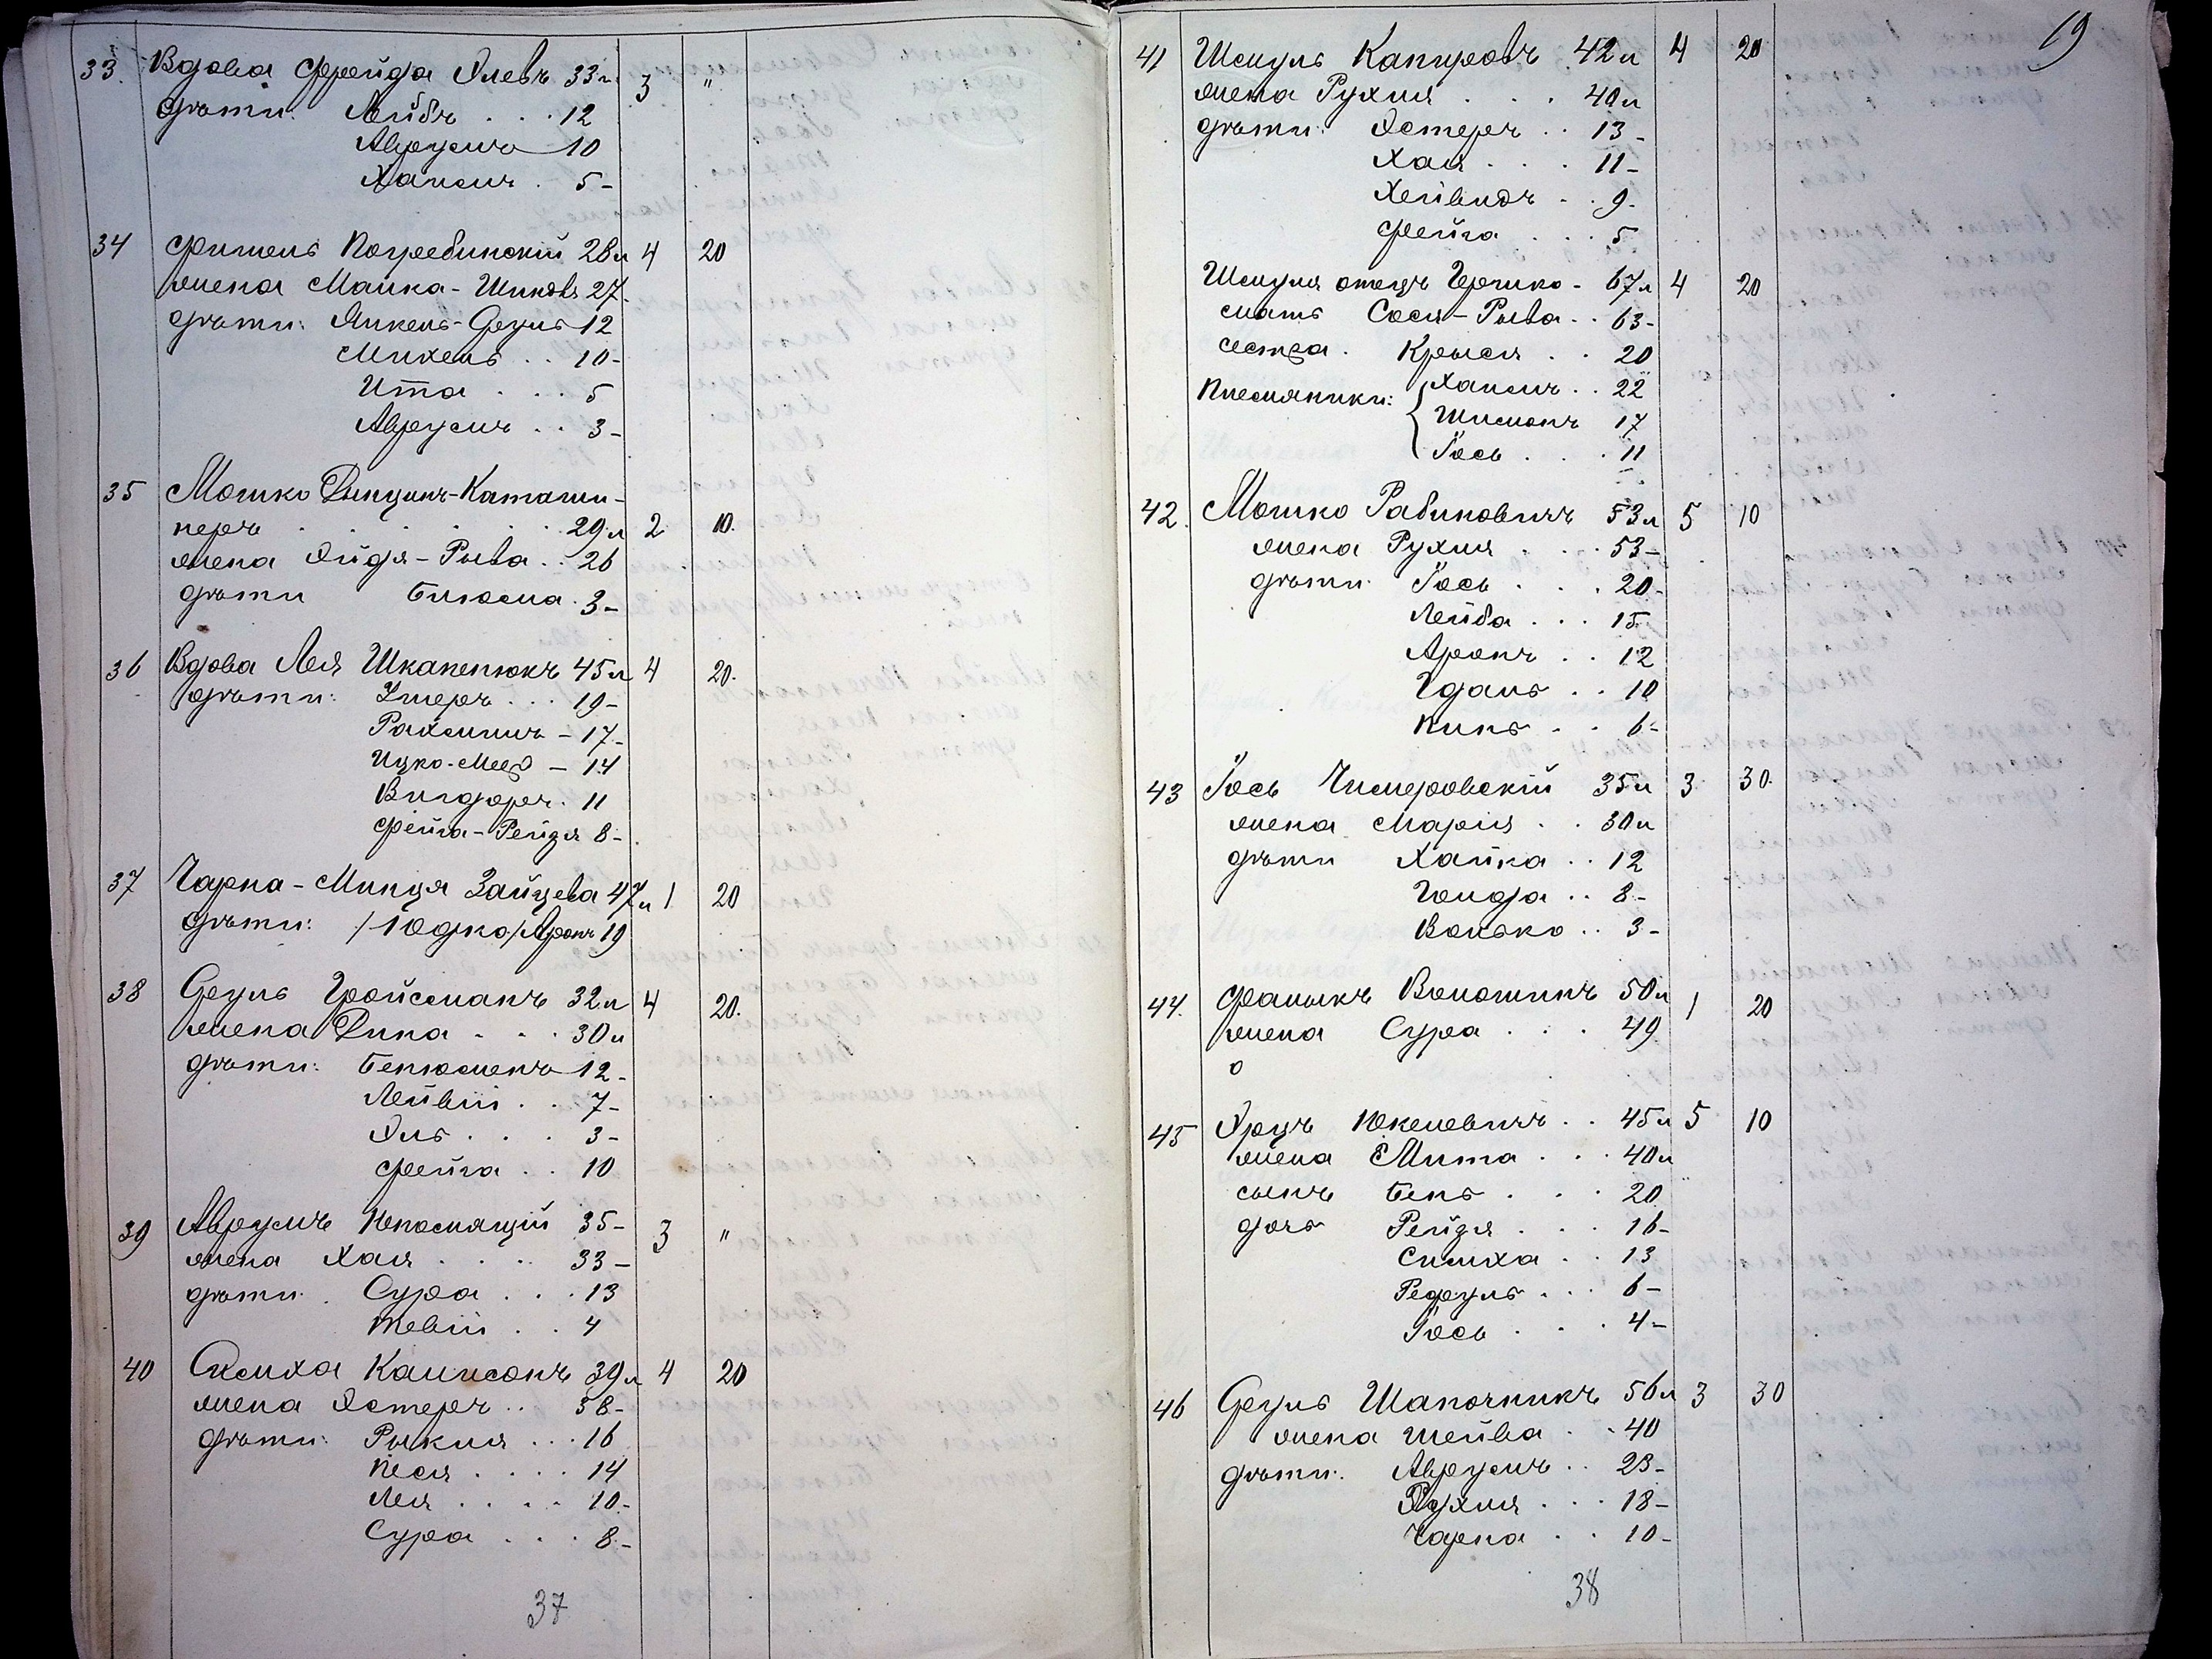 33. Вдова Фрейда Элевъ 33 л. 3 "
дѣти: Лейбъ . . . 12
Аврумъ 10
Хаимъ . 5 -
34 Фишель Погребинскій 28 л 4 20
жена Малка - 27.
дѣти: Янкель-Сруль 12
Михель . . 10 -
Ита . . . 5
Аврумъ . . 3 -
35 Мошко
. . . . . . 29 л 2 10.
жена Эйдя - Рива . . 26
дѣти Блюма . 3 -
36 Вдова Лея Шкапенюкъ 45 л 4 20.
дѣти: Умеръ . . . 19 -
Рахмиль - 17 -
Ицко-Меер - 14
Вигдоръ . 11
Фейга - Рейзя 8 -
37 Чарна - Минця Зайцева 47 л 1 20
дѣти: /Юдко/ Аронъ 19
38 Сруль Гройсманъ 32 л 4 20.
жена Дина . . . 30 л
дѣти: Беньюменъ 12 -
Лейвіи . . 7 -
Эль . . . 3 -
Фейга . . 10
39 Аврумъ Непомящій 35 - 3 "
жена Хая . . . . 33 -
дѣти . Сура . . . 13
Тевіи . . 4
40 Симха 39 л 4 20
жена Эстеръ . . 38 -
дѣти: Рикля . . . 16
Песя . . . . 14
Лея . . . . 10 -
Сура . . . 8 -
37
19
41 Шмуль Капировъ 42 л 4 20
жена Рухля . . . 40 л
дѣти: Эстеръ . . 13 -
Хая . . . 11 -
Хейвидъ . . 9 -
Фейга . . . 5
Шмуля отецъ Гершко - 67 л 4 20
мать Сося - Рива . . 63 -
сестра . Крыся . . 20
Племяники: { Хаимъ . . 22
Шимонъ 17
Іось . . . 11
42. Мошко Рабиновичъ 53 л 5 10
жена Рухля . . . 53 -
дѣти Іось . . . 20 -
Лейба . . . 15
Аронъ . . 12
Гдаль . . 10
Нинь . . 6 -
43 Іось Чимеровскій 35 л 3 30.
жена Марія . . 30 л
дѣти Хайка . . 12
Голда . . 8 -
Волько . . 3 -
44. Фалыкъ Волошинъ 50 л 1 20
жена Сура . . . 49
0
45 Эруъ Юкелевичъ . . 45 л 5 10
жена Мита . . . 40 л
сынъ Бень . . . 20
дочь Рейзя . . . 16 -
Симха . . 13
. . . 6 -
Іось . . . 4 -
46 Сруль Шапочникъ 56 л 3 30
жена Шейва . . 40
дѣти: Аврумъ . . 23 -
Рухля . . . 18 -
Чарна . . 10 -
38